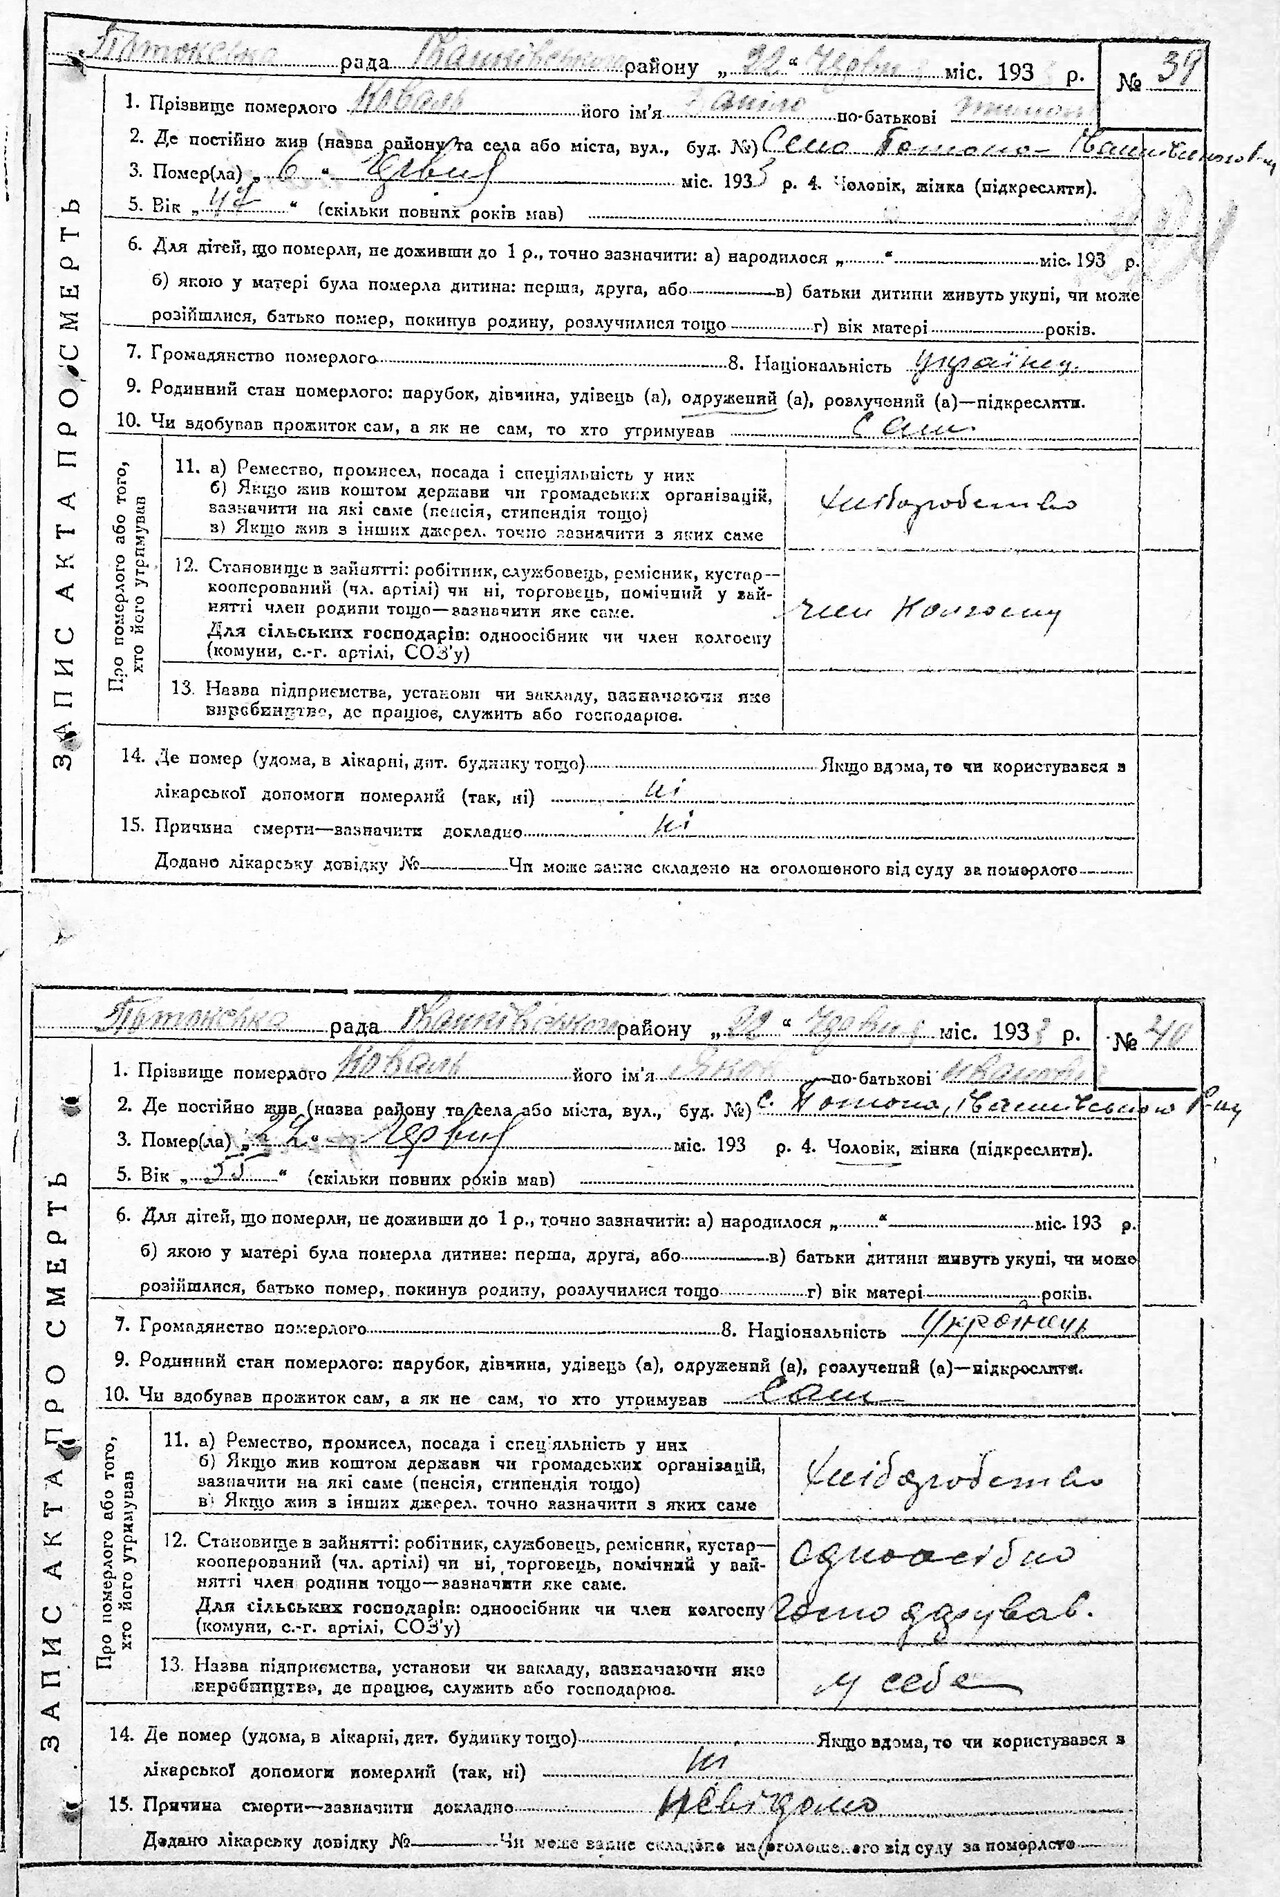 Потокська рада Іванківського району „ 22 “ Червня міс. 193 р. № 39
1. Прізвище померлого Коваль його ім'я Даніло по-батькові
2. Де постійно жив (назва району та села або міста, вул., буд. №) Село Потоки
3. Помер(ла) „ 6 “ Червня міс. 1933 р. 4. Чоловік, жінка (підкреслити).
5. Вік „ 47 “ (скільки повних років мав)
6. Для дітей, що померли, не доживши до 1 р., точно зазначити: а) народилося „ “ міс. 193 р.
б) якою у матері була померла дитина: перша, друга, або в) батьки дитини живуть укупі, чи може
розійшлися, батько помер, покинув родину, розлучилися тощо г) вік матері років.
7. Громадянство померлого 8. Національність українец
9. Родинний стан померлого: парубок, дівчина, удівець (а), одружений (а), розлучений (а)—підкреслити.
10. Чи здобував прожиток сам, а як не сам, то хто утримував Сам
ЗАПИС АКТА ПРО СМЕРТЬ
Про померлого або того,
хто його утримував
11. а) Ремество, промисел, посада і спеціяльність у них
б) Якщо жив коштом держави чи громадських організацій,
зазначити на які саме (пенсія, стипендія тощо)
в) Якщо жив з інших джерел. точно зазначити з яких саме
Хліборобство
12. Становище в зайнятті: робітник, службовець, ремісник, кустар—
кооперований (чл. артілі) чи ні, торговець, помічний у зай-
нятті член родини тощо—зазначити яке саме.
Для сільських господарів: одноосібник чи член колгоспу
(комуни, с.-г. артілі, СОЗ'у)
член Колгоспу
13. Назва підприємства, установи чи закладу, зазначаючи яке
виробництво, де працює, служить або господарює.
14. Де помер (удома, в лікарні, дит. будинку тощо) Якщо вдома, то чи користувався з
лікарської допомоги померлий (так, ні) ні
15. Причина смерти—зазначити докладно ні
Додано лікарську довідку № Чи може запис складено на оголошеного від суду за померлого
Потокська рада Іванківського району „ 22 “ Червня міс. 1933 р. № 40
1. Прізвище померлого Коваль його ім'я Яков по-батькові Іванович
2. Де постійно жив (назва району та села або міста, вул., буд. №) с. Потоки, Іванківського р-ну
3. Помер(ла) „ 22 “ Червня міс. 193 р. 4. Чоловік, жінка (підкреслити).
5. Вік „ 55 “ (скільки повних років мав)
6. Для дітей, що померли, не доживши до 1 р., точно зазначити: а) народилося „ “ міс. 193 р.
б) якою у матері була померла дитина: перша, друга, або в) батьки дитини живуть укупі, чи може
розійшлися, батько помер, покинув родину, розлучилися тощо г) вік матері років.
7. Громадянство померлого 8. Національність українець
9. Родинний стан померлого: парубок, дівчина, удівець (а), одружений (а), розлучений (а)—підкреслити.
10. Чи здобував прожиток сам, а як не сам, то хто утримував Сам
ЗАПИС АКТА ПРО СМЕРТЬ
Про померлого або того,
хто його утримував
11. а) Ремество, промисел, посада і спец'яльність у них
б) Якщо жив коштом держави чи громадських організацій,
зазначити на які саме (пенсія, стипендія тощо)
в) Якщо жив з інших джерел. точно зазначити з яких саме
Хліборобство
12. Становище в зайнятті: робітник, службовець, ремісник, кустар—
кооперований (чл. артілі) чи ні, торговець, помічний у зай-
нятті член родини тощо—зазначити яке саме.
Для сільських господарів: одноосібник чи член колгоспу
(комуни, с.-г. артілі, СОЗ'у)
одноосібно
господарував.
13. Назва підприємства, установи чи закладу, зазначаючи яке
виробництво, де працює, служить або господарює.
у себе
14. Де помер (удома, в лікарні, дит. будинку тощо) Якщо вдома, то чи користувався з
лікарської допомоги померлий (так, ні) ні
15. Причина смерти—зазначити докладно невідомо
Додано лікарську довідку № Чи може запис складено на оголошеного від суду за померлого